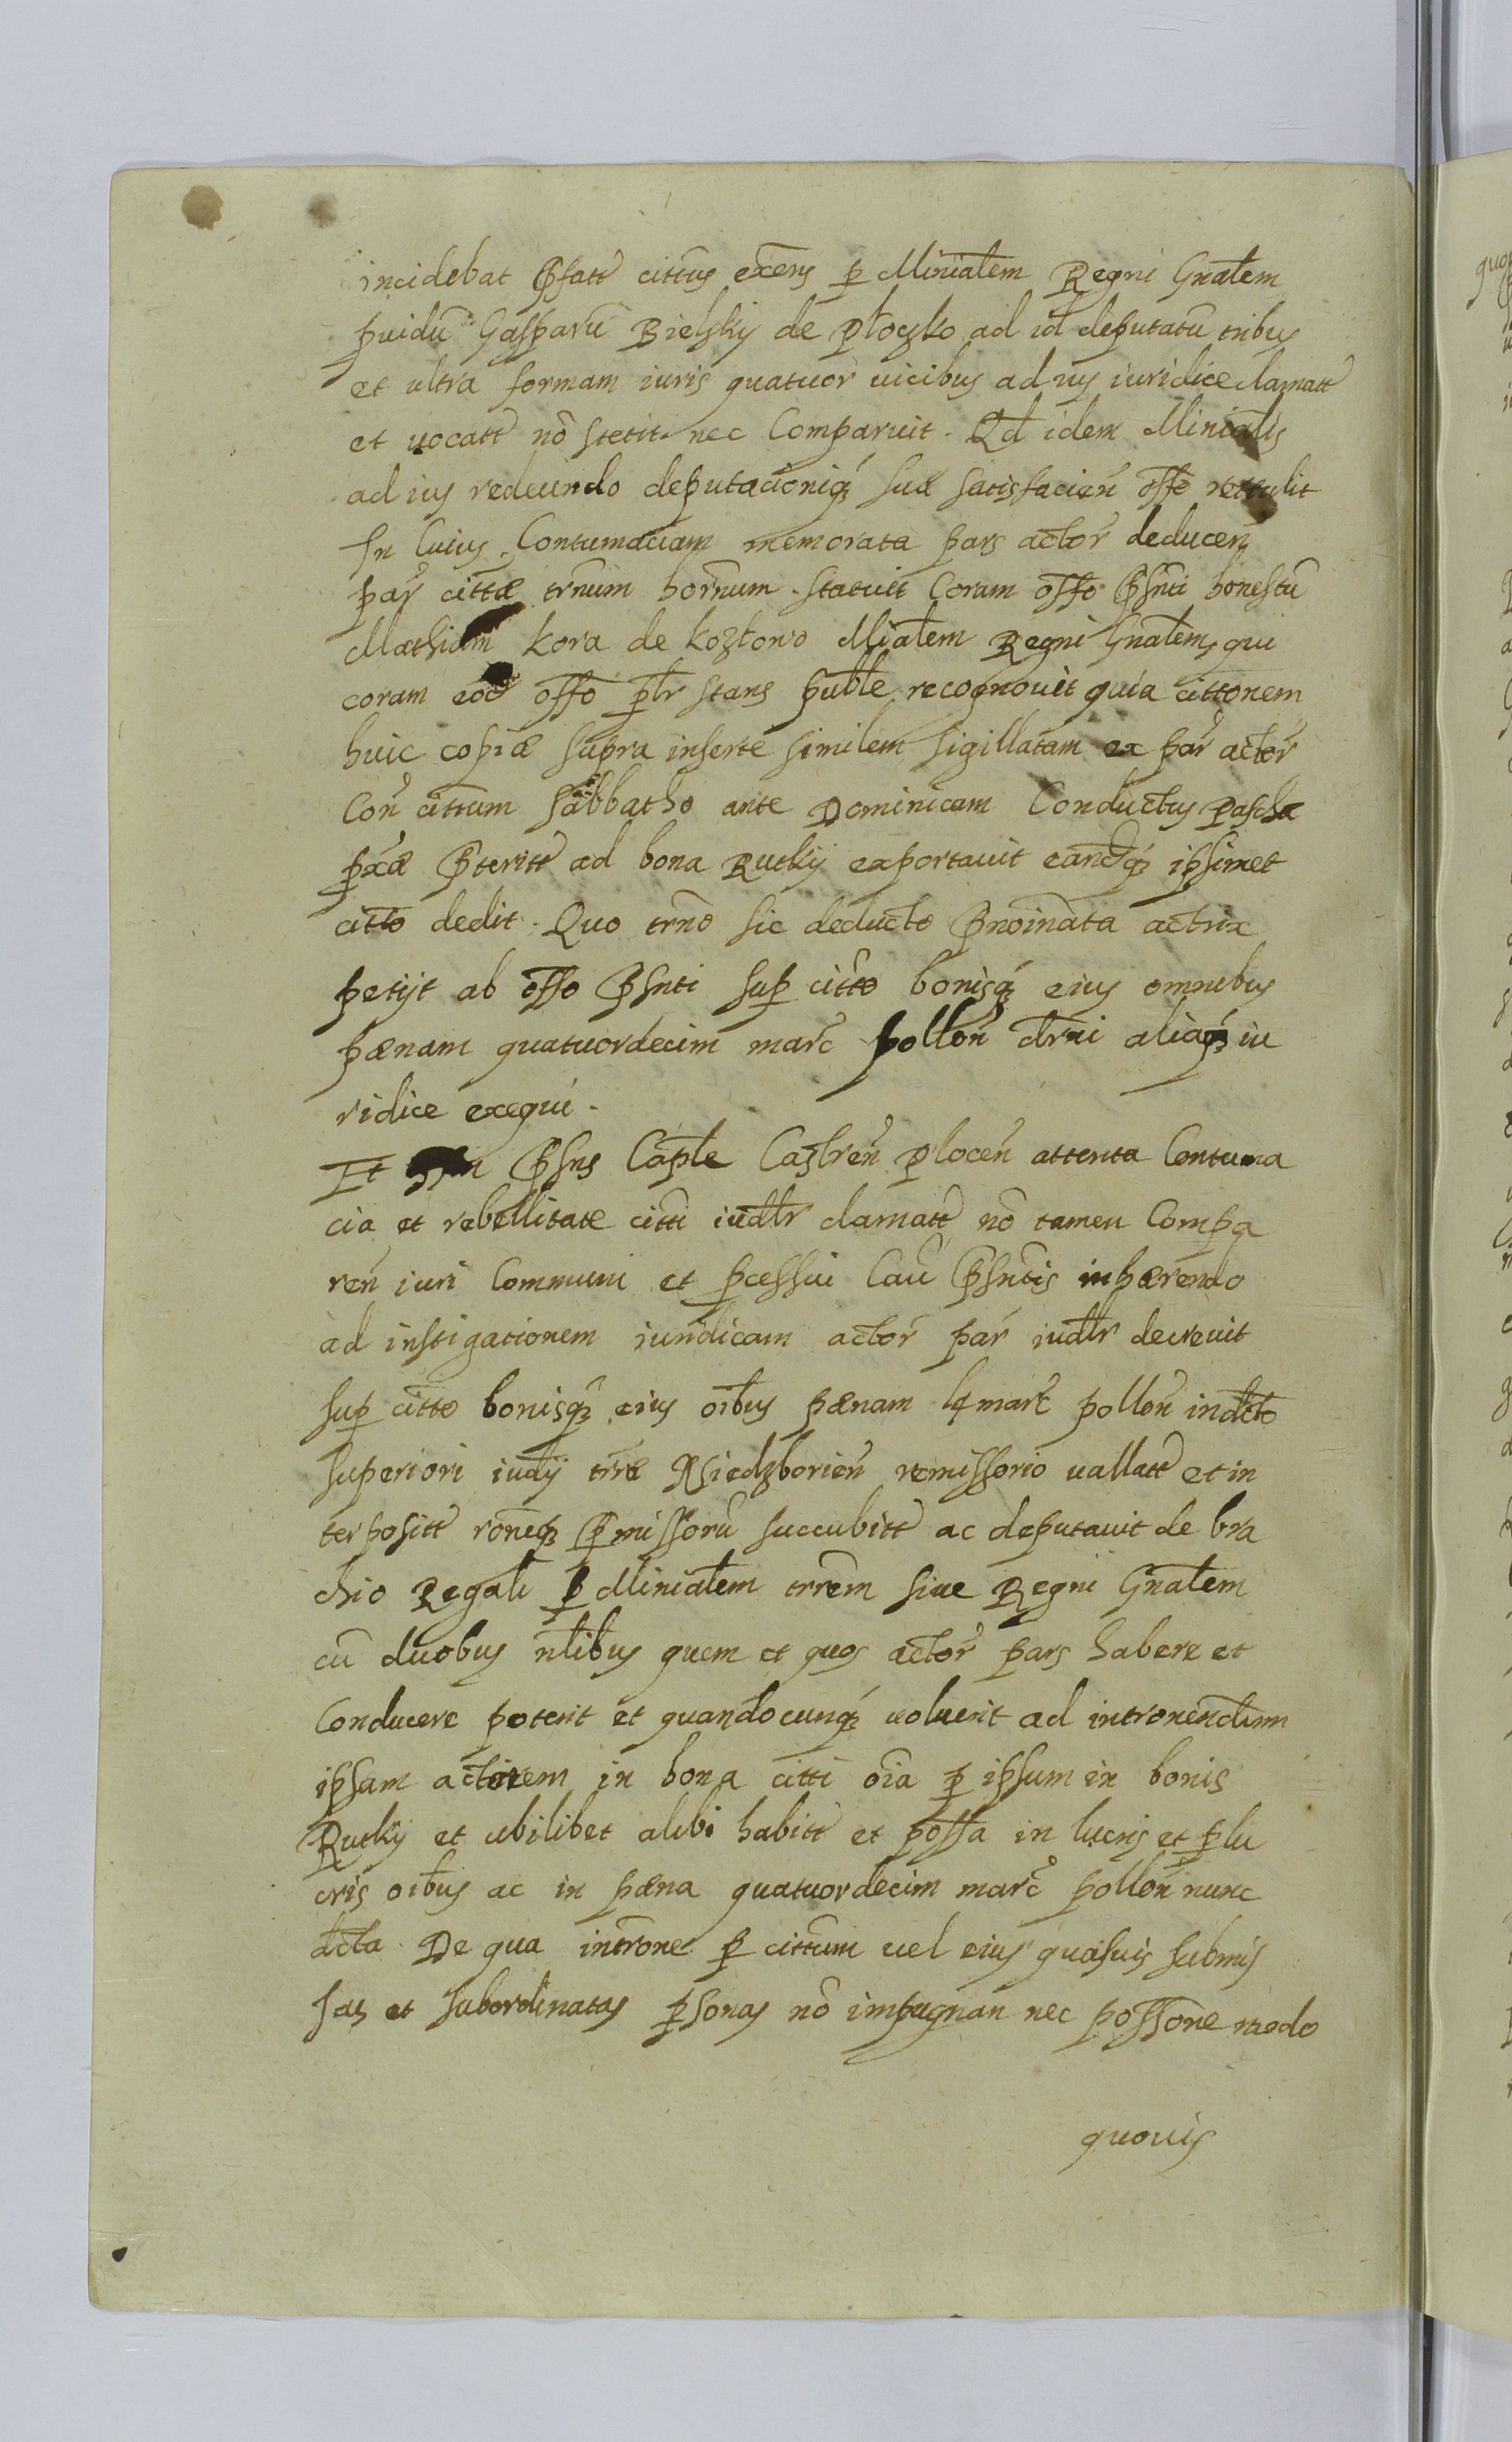 incidebat Pfatt cittus exens p Minialem Regni Gnalem
puidū Gasparū Bielsky de Płoczko ad id deputatū tribus
et ultra formam iuris quatuor uicibus ad ius iuridice clamatt
et uocatt nō stetit nec Comparuit. Qd idem Minialis
ad ius redeundo deputacioniq3 suæ satisfacien̄ offo rettulit
In Cuius Contumaciam memorata pars actor deducen̄
par cittæ trnum hornum statuit Coram offo Psnti honestū
Mathiam Kora de Kozłowo Mialem Regni Gnalem, qui
coram eod offo ptr stans puble recognouit quia cittonem
huic copiæ supra inserte similem sigillatam ex par actor
Con cittum Sabbatho ante Dominicam Conductus Paschæ
pxæ Pteritt ad bona Rutky exportauit eandq3 ipsimet
citto dedit. Quo trno sic deducto Pnoinata actrix
petijt ab offo Psnti sup citto bonisq3 eius omnibus
pænam quatuordecim marc pollon̄ dcrni aliaq3 iu
ridice exequi.
Et Psns Caple Castren̄ Plocen̄ attenta Contuma
cia et rebellitate citti iudlr clamatt nō tamen Compa
ren̄ iuri Communi et pcessui Cau Psntis inhærendo
ad instigationem iuridicam actor par iudlr decreuit
sup citto bonisq3 eius oibus pænam 14 marc pollon̄ indcto
superiori iudij trræ Niedzborien̄ remissorio uallatt et in
terpositt roneq3 Pmissorū succubitt ac deputauit de bra
chio Regali p Minialem trrem siue Regni Gnalem
cū duobus nlibus quem et quos actor pars habere et
Conducere poterit et quandocunq3 uoluerit ad intronendum
ipsam actorem in bona citti oia p ipsum in bonis
Rutky et ubilibet alibi habitt et possa in lucris et plu
cris oibus ac in pæna quatuordecim marc pollon̄ nunc
dcta. De qua introne p cittum uel eius quasuis submis
sas et subordinatas psonas nō impugnan nec possone modo
quouis